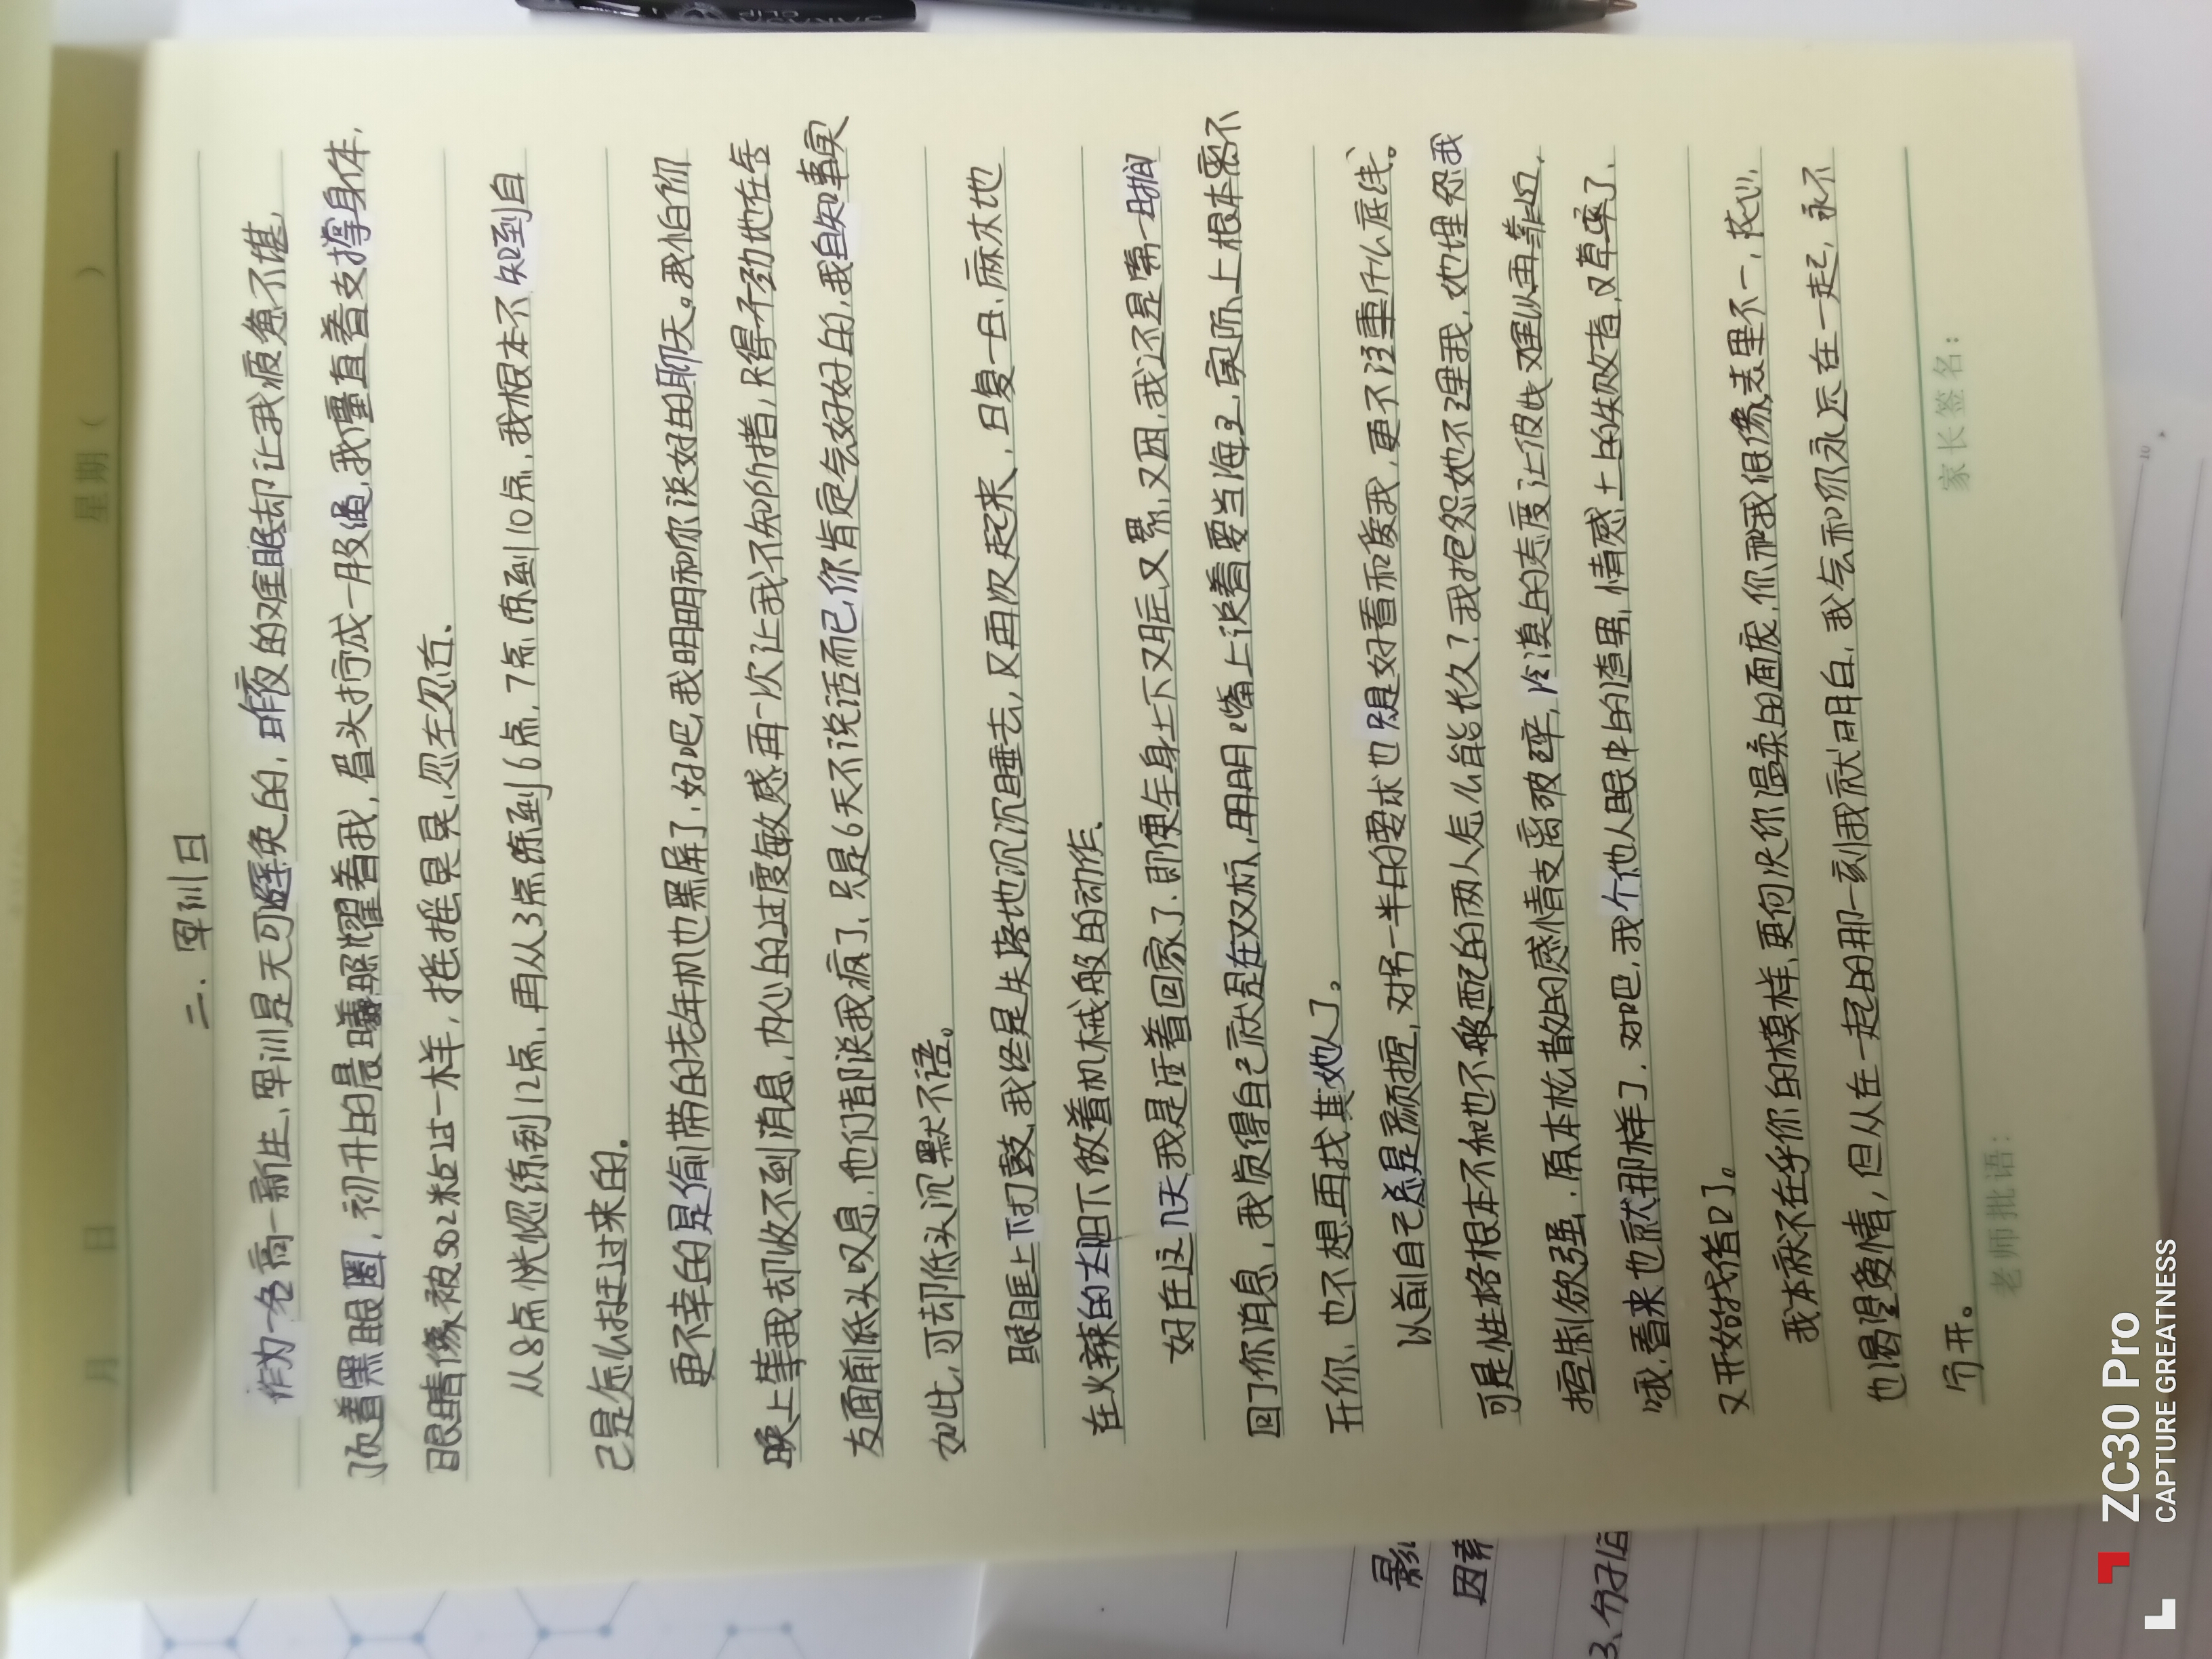 月 日 星期( )
二、军训日
作为一名高一新生,军训是无可避免的,昨夜的难眠却让我疲惫不堪,
顶着黑眼圈,初升的晨曦照耀着我,眉头拧成一股绳,我僵直着支撑身体,
眼睛像被502粘过一样,摇摇晃晃,忽左忽右、
从8点恍惚练到12点,再从3点练到6点,7点练到10点,我根本不知到自
己是怎么挺过来的.
更不幸的是偷带的老年机也黑屏了,好吧,我明明和你说好的聊天。我怕你
晚上等我却收不到消息,内心的过度敏感再一次让我不知所措,只得不劲地在舍
友面前低头叹息,他们都说我疯了,只是6天不说话而已,你肯定会好好的,我自知事实
如此,可却低头沉默不语。
眼眶上下打鼓,我终是失落地沉沉睡去,又再次起来,日复一日,麻木地
在火辣的太阳下做着机械般的动作、
好在这几天,我是活着回家了、即便全身上下又脏,又累,又困,我还是第一时间
回了你消息,我质得自己就是在双标,明明嘴上说着要当海王,实际上根本离不
开你、也不想再找其她人了。
以前自己总是颜值控,对另一半的要求也只是好看和爱我,更不注重什么底线。
可是性格根本不和也不般配的两人怎么能长久?我抱怨她不理我,她埋怨我
控制欲强,原本松散的感情支离破碎,冷漠的态度让彼此难以再靠近,
哦,看来也就那样了,对吧,我个他人眼中的渣男,情感上的失败者,又草率了、
又开始找借口了。
我本就不在乎你的模样,更何况你温柔的面庞,你和我很像,表里不一,花心,
也渴望爱情,但从在一起的那一刻我就明白,我会和你永远在一起,永不
分开。
老师批语: 家长签名:
因素
ZC30 Pro
CAPTURE GREATNESS